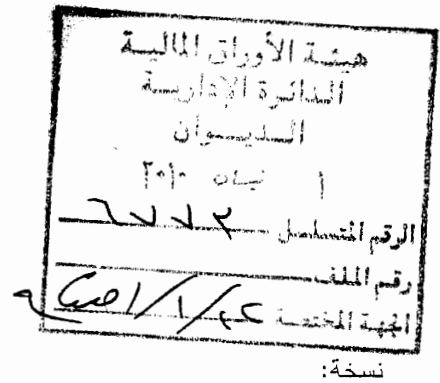 هيئة الأوراق المالية
الدائرة الإدارية
الديوان
١ نيسان ٢٠١٠
الرقم المتسلسل
رقم الملف
الجهة المختصة
نسخة: